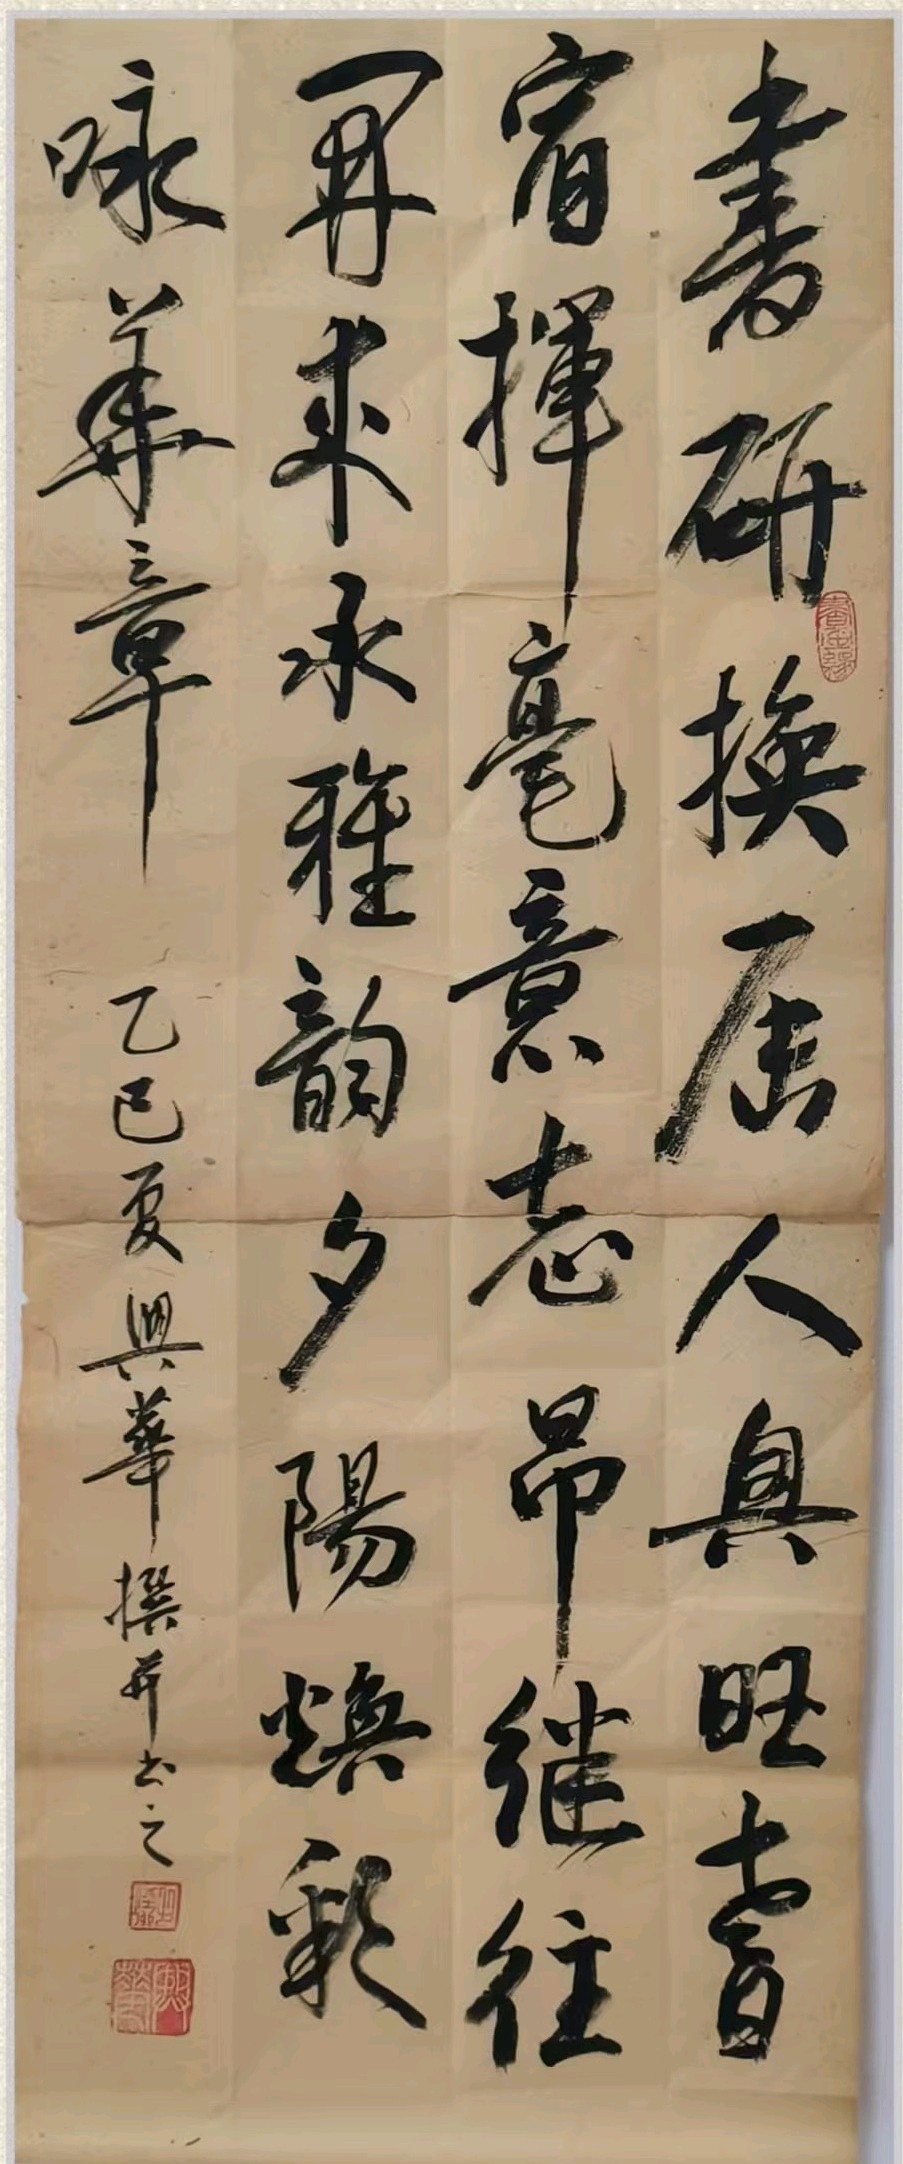 書研換届人興旺書
齊揮毫意志昂繼往
開來承雅韻夕陽煥彩
咏華章 乙巳夏興華撰并书之